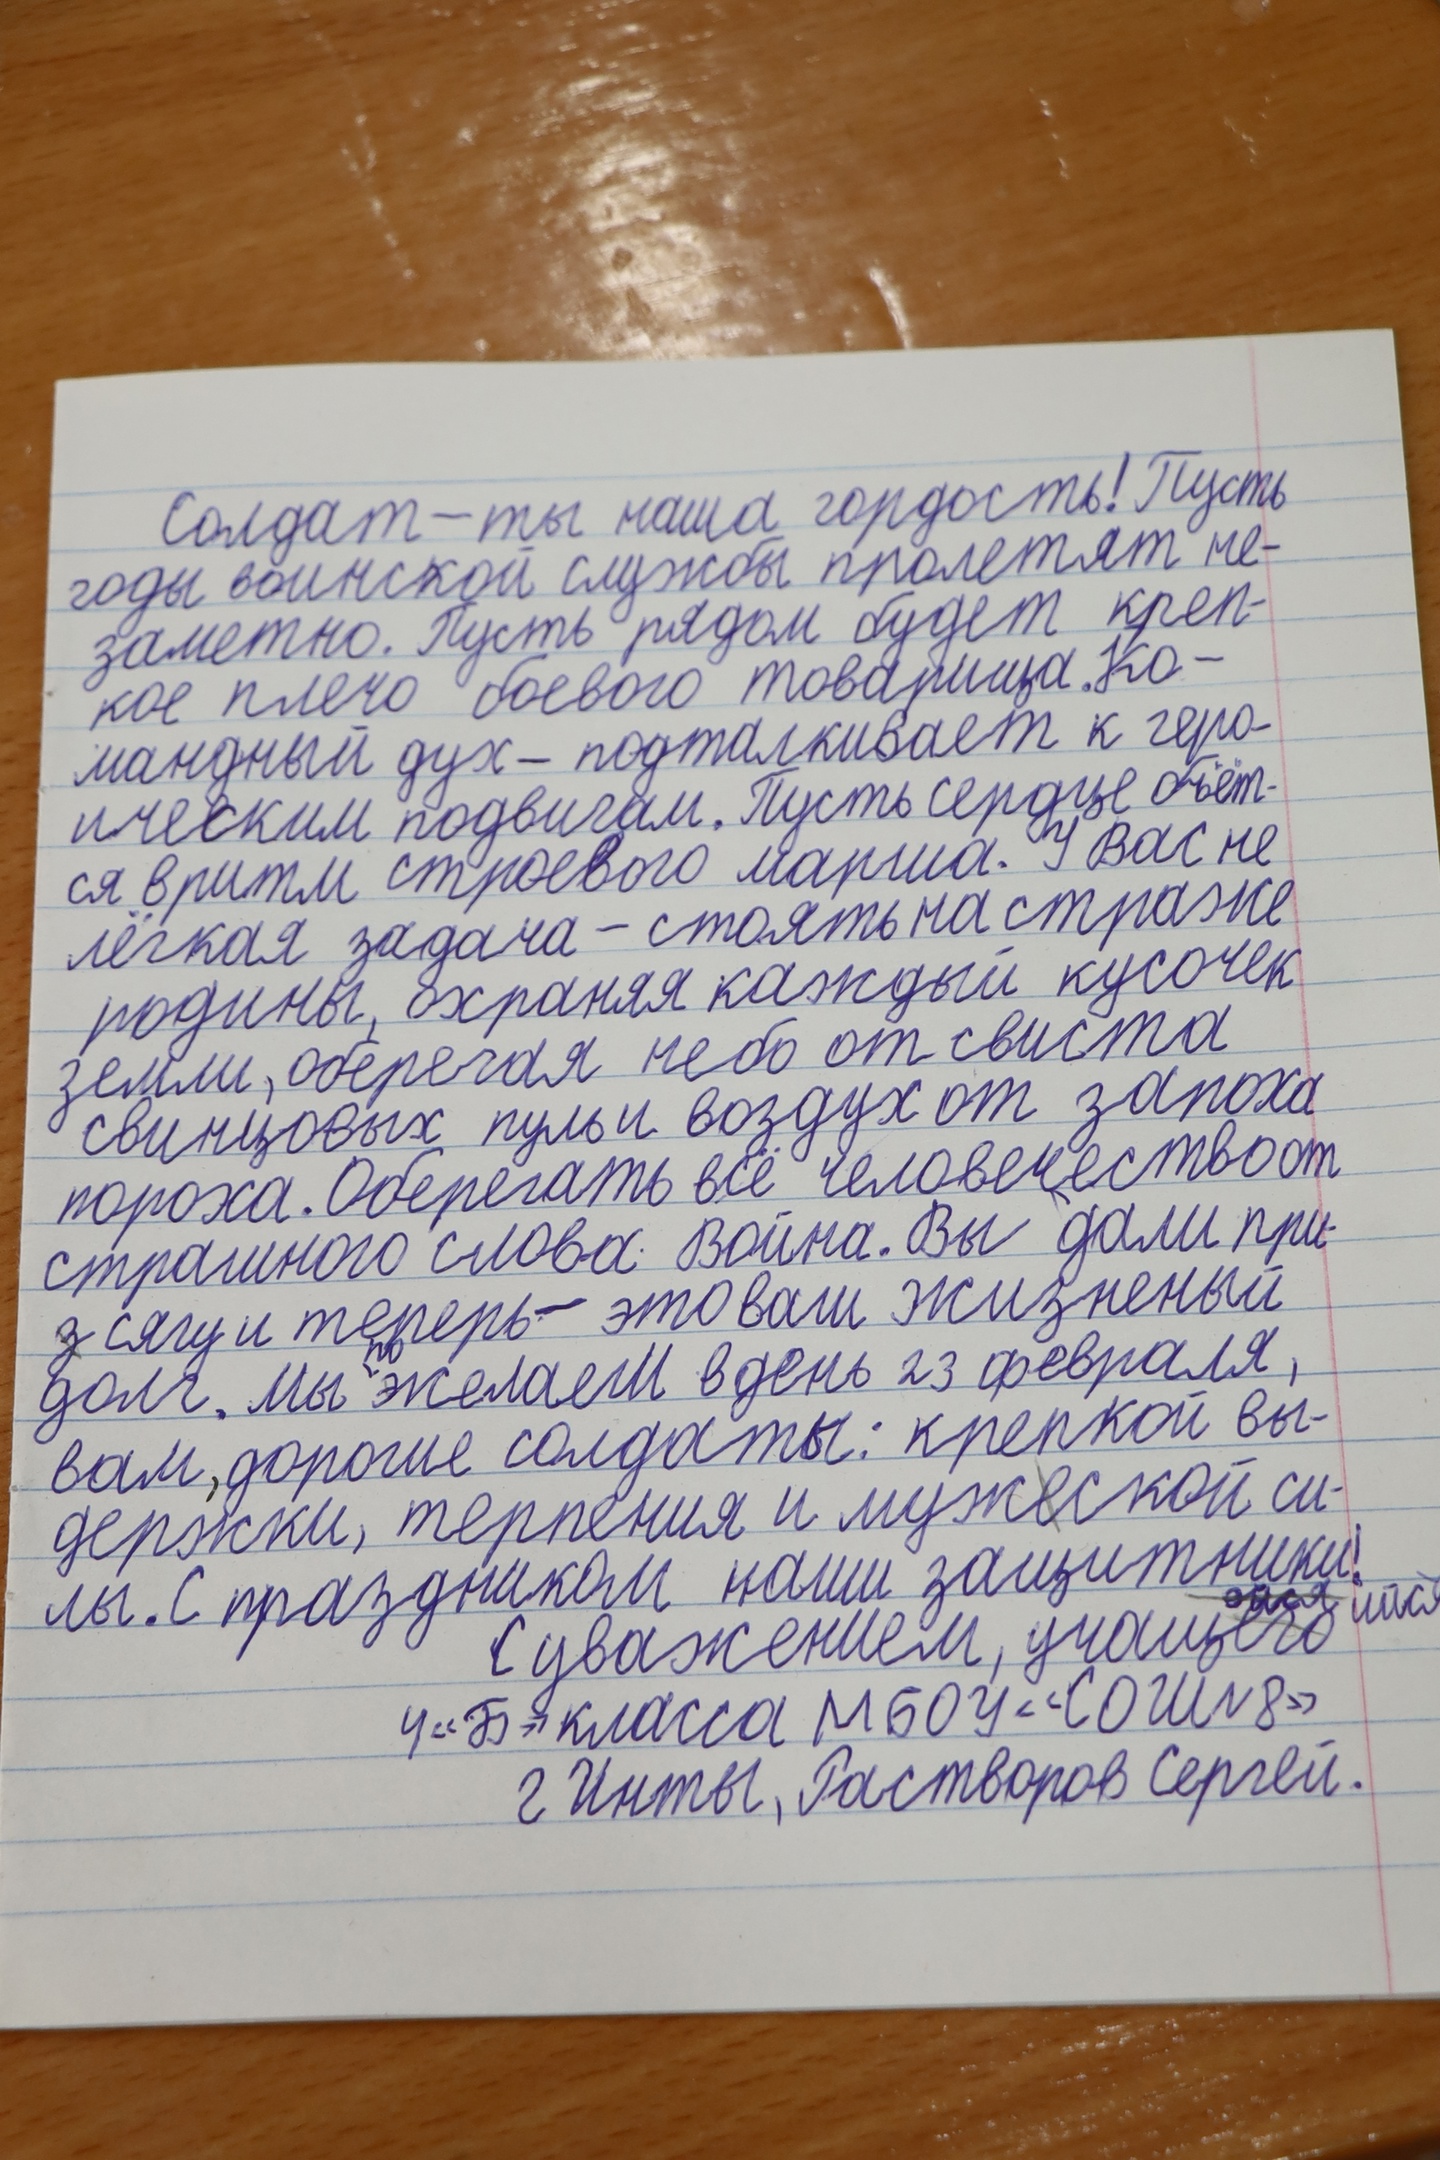 Солдат – ты наша гордость! Пусть
годы воинской службы пролетят не-
заметно. Пусть рядом будет креп-
кое плечо боевого товарища. Ко-
мандный дух – подталкивает к геро-
ическим подвигам. Пусть сердце бьёт-
ся в ритм строевого марша. У Вас не
лёгкая задача – стоять на страже
родины, охраняя каждый кусочек
земли, оберегая небо от свиста
свинцовых пуль и воздух от запоха
пороха. Оберегать всё человечество от
страшного слова Война. Вы дали при-
сягу и теперь – это ваш жизненый
долг. Мы желаем в день 23 февраля,
вам, дорогие солдаты: крепкой вы-
держки, терпения и мужеской си-
лы. С праздником наши защитники!
С уважением, учащийся
4 «Б» класса МБОУ «СОШ№8»
г Инты, Растворов Сергей.